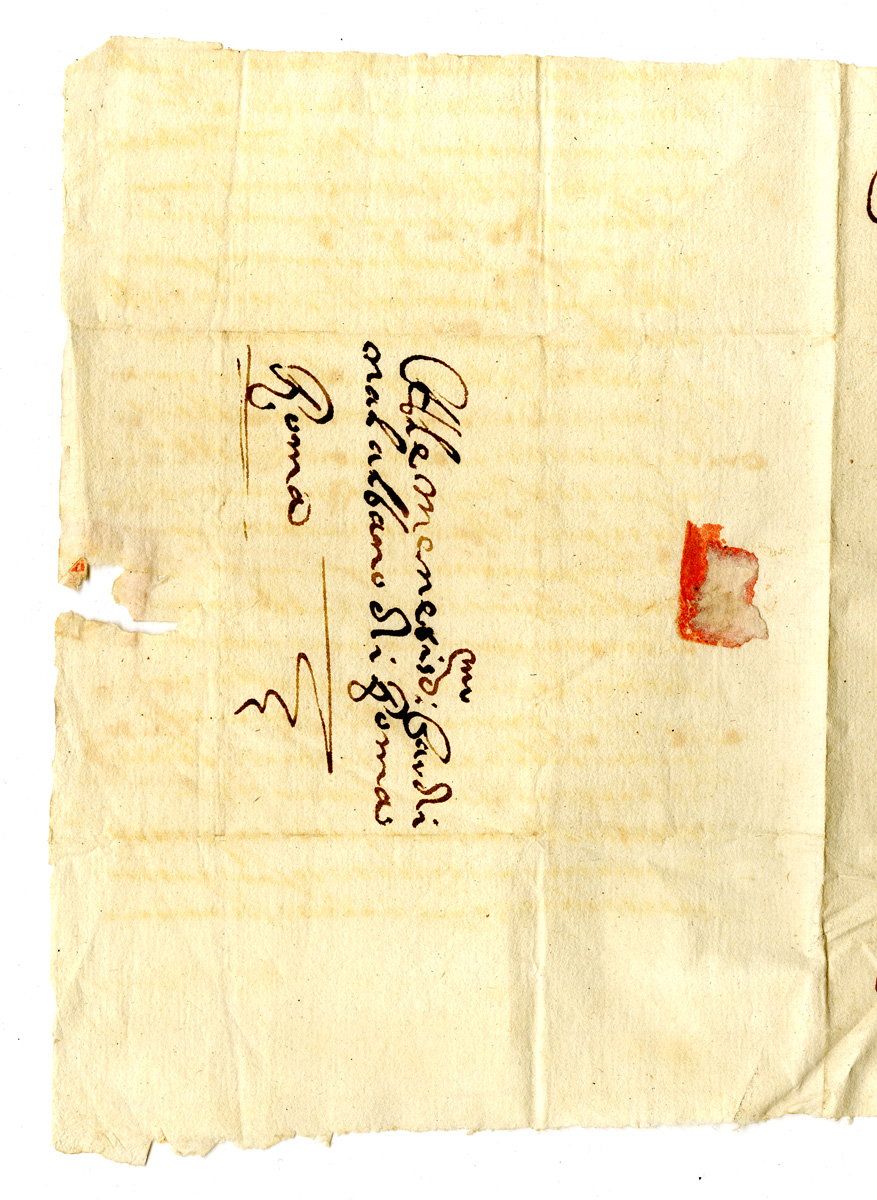 All emenentiss:mo Cardi
nal albano di Roma
Roma